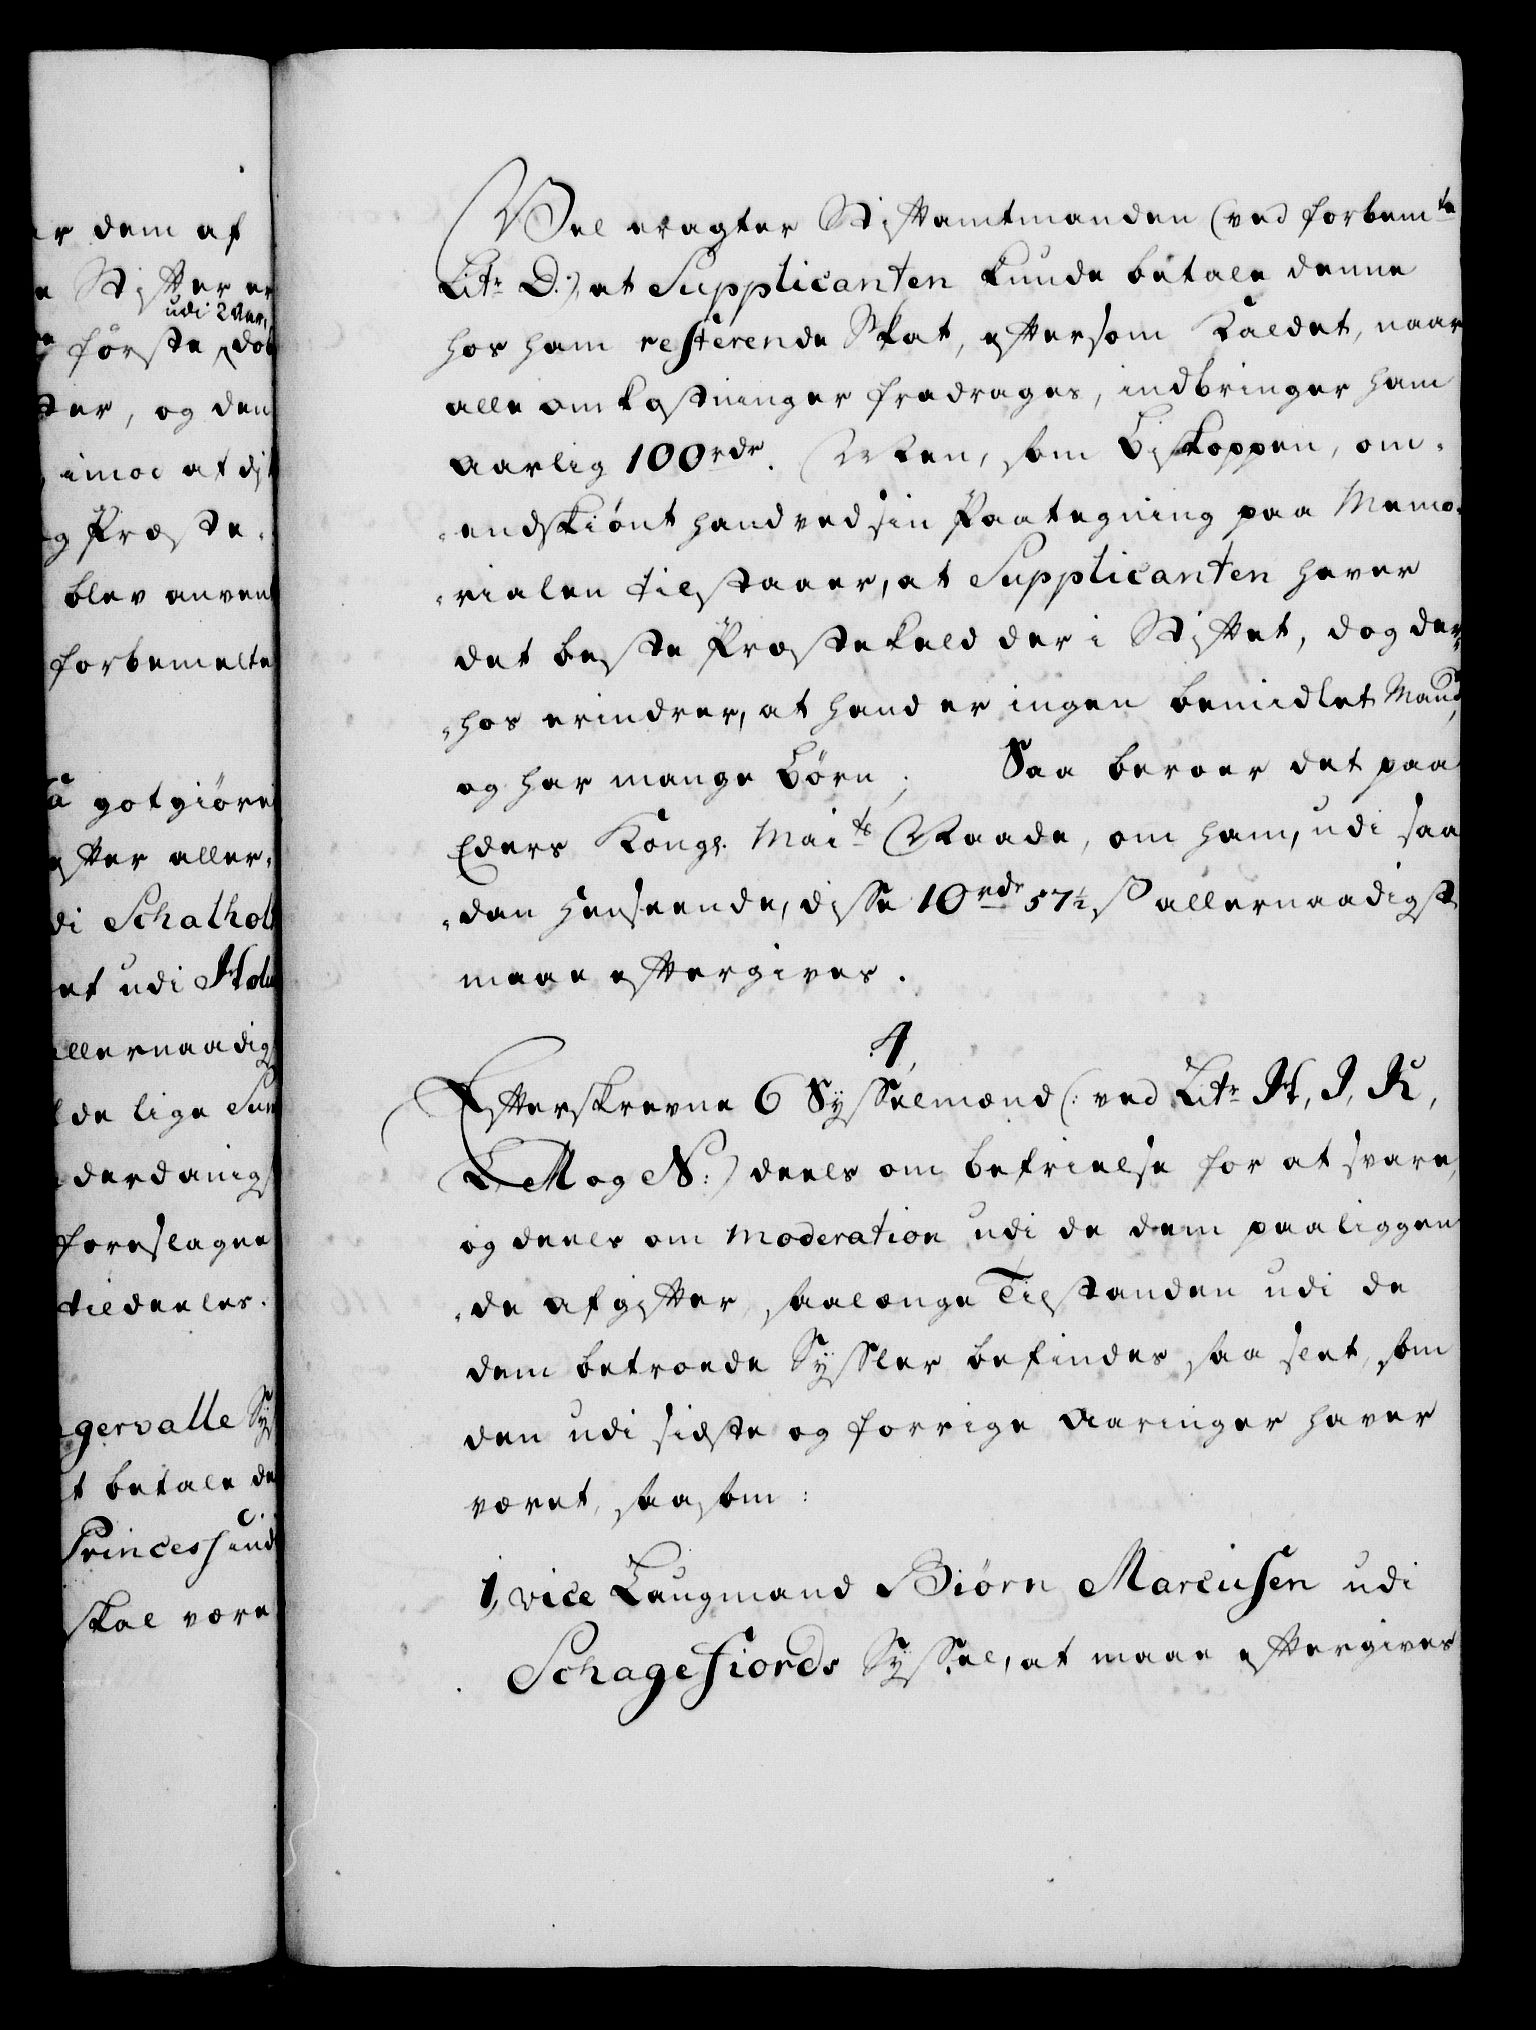 er dem af
e Stifter er
udi 2 Aar,
første dob
ter, og den
imod at dj
g Præste-
blev anvent
forbemelte
a gotgiøre
after aller-
di Schalholt
et udi Holu
allernaadigs
de lige Sum
derdanigs
foreslagne
tildeeles.
gervalle Sy
t betale de
Princessind
skal være
Vel eragter Stiftamtmanden (ved forbemte
Litr D:), at Supplicanten kunde betale denne
hos ham resterende Skat, eftersom Kaldet, naar
alle omkostninger fradrages, indbringer ham
aarlig 100 rdr. Men, som Biskoppen, om-
-endskiønt hand ved sin Paategning paa Memo-
-rialen tilstaaer, at Supplicanten haver
det beste Præstekald der i Stiftet, dog der-
-hos erindrer, at hand er ingen bemidlet Mand,
og har mange Børn; Saa beroer det paa
Eders Kongl. Maits Naade, om ham, udi saa
-dan henseende, disse 10 rdr 57½ s allernaadigst
maae eftergives.
4,
Efterskrevne 6 Sysselmænd (: ved Litr H, I, K,
L, M og N:) deels om befrielse for at svare,
og deels om Moderation udi de dem paaliggen
-de afgifter, saalænge Tilstanden udi de
dem betroede Sysler befindes saa slet, som
den udi sidste og forrige Aaringer haver
været, saasom:
1, vice Laugmand Biørn Marcusen udi
Schagefiords Syssel, at maae eftergives